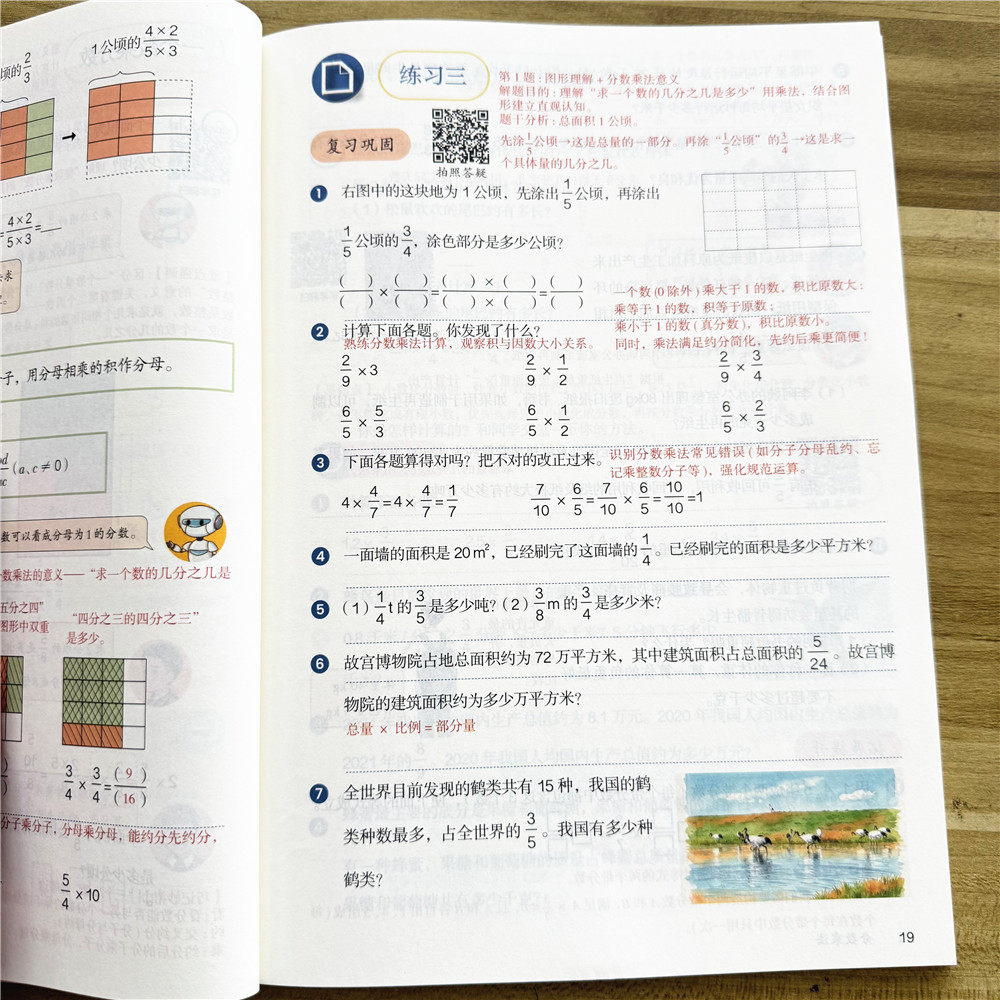 项的 2/3
1公顷的 4×2/5×3
= 4×2/5×3 =
子，用分母相乘的积作分母。
(a、c≠0)
数可以看成分母为1的分数。
数乘法的意义——“求一个数的几分之几是
五分之四”
图形中双重
“四分之三的四分之三”
是多少。
3/4 × 3/4 = (9)/(16)
分子乘分子，分母乘分母，能约分先约分，
5/4 ×10
练习三
第1题：图形理解+分数乘法意义
解题目的：理解“求一个数的几分之几是多少”用乘法，结合图
形建立直观认知。
题干分析：总面积1公顷。
先涂 1/5 公顷→这是总量的一部分。再涂“1/5 公顷”的 3/4 →这是求一
个具体量的几分之几。
复习巩固
拍照答疑
1 右图中的这块地为1公顷，先涂出 1/5 公顷，再涂出
1/5 公顷的 3/4，涂色部分是多少公顷？
( )/( ) × ( )/( ) = ( )×( )/( )×( ) = ( )/( )
一个数(0除外)乘大于1的数，积比原数大；
乘等于1的数，积等于原数；
乘小于1的数(真分数)，积比原数小。
同时，乘法满足约分简化，先约后乘更简便！
2 计算下面各题。你发现了什么？
熟练分数乘法计算，观察积与因数大小关系。
2/9 ×3 2/9 × 1/2 2/9 × 3/4
6/5 × 5/3 6/5 × 1/2 6/5 × 2/3
3 下面各题算得对吗？把不对的改正过来。
识别分数乘法常见错误(如分子分母乱约、忘
记乘整数分子等)，强化规范运算。
4× 4/7 =4× 4/7 = 1/7 7/10 × 6/5 = 7/10 × 6/5 = 10/10 =1
4 一面墙的面积是20m²，已经刷完了这面墙的 1/4。已经刷完的面积是多少平方米？
5 (1) 1/4 t的 3/5 是多少吨？(2) 3/8 m的 3/4 是多少米？
6 故宫博物院占地总面积约为72万平方米，其中建筑面积占总面积的 5/24。故宫博
物院的建筑面积约为多少万平方米？
总量 × 比例 = 部分量
7 全世界目前发现的鹤类共有15种，我国的鹤
类种数最多，占全世界的 3/5。我国有多少种
鹤类？
19